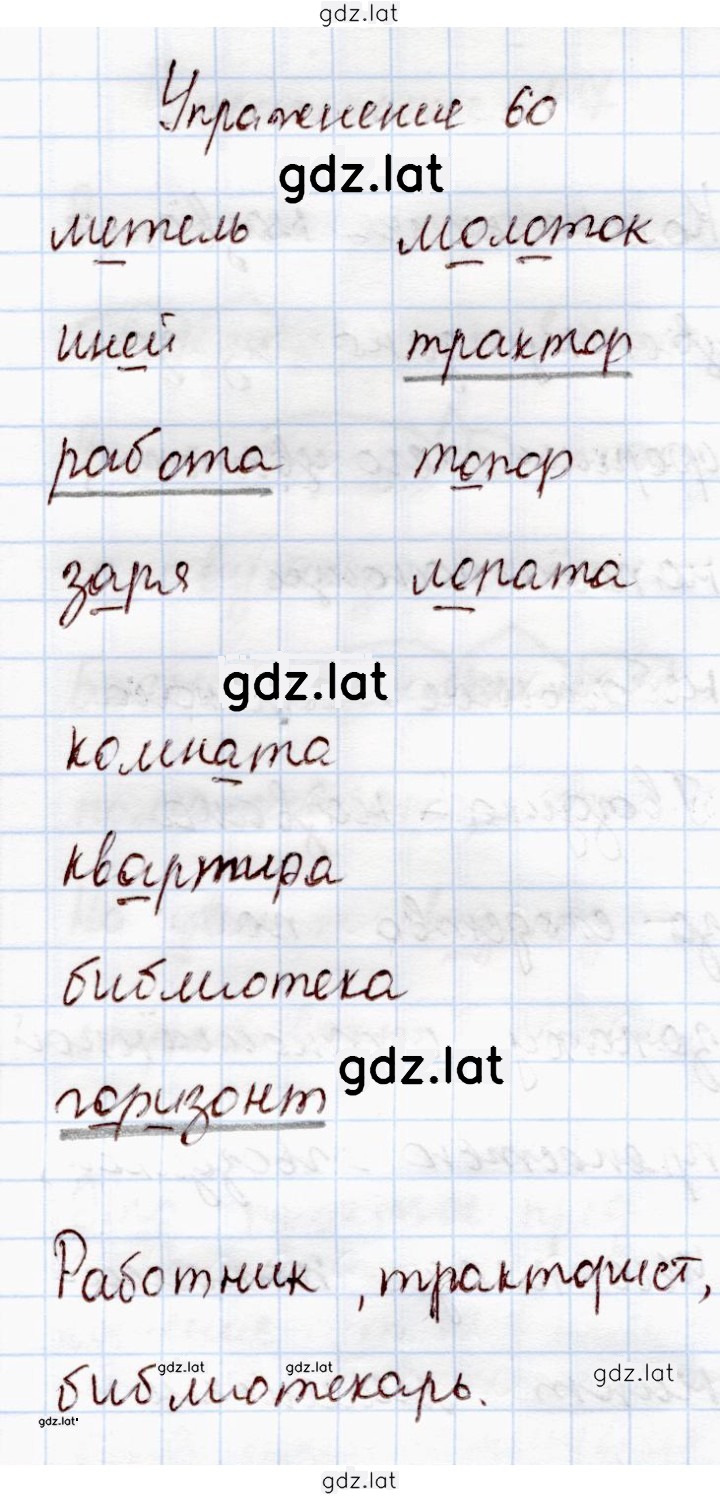 gdz.lat
Упражнение 60
gdz.lat
метель молоток
иней трактор
работа топор
заря лопата
gdz.lat
комната
квартира
библиотека
gdz.lat
горизонт
Работник, тракторист,
gdz.lat gdz.lat gdz.lat
библиотекарь.
gdz.lat
gdz.lat